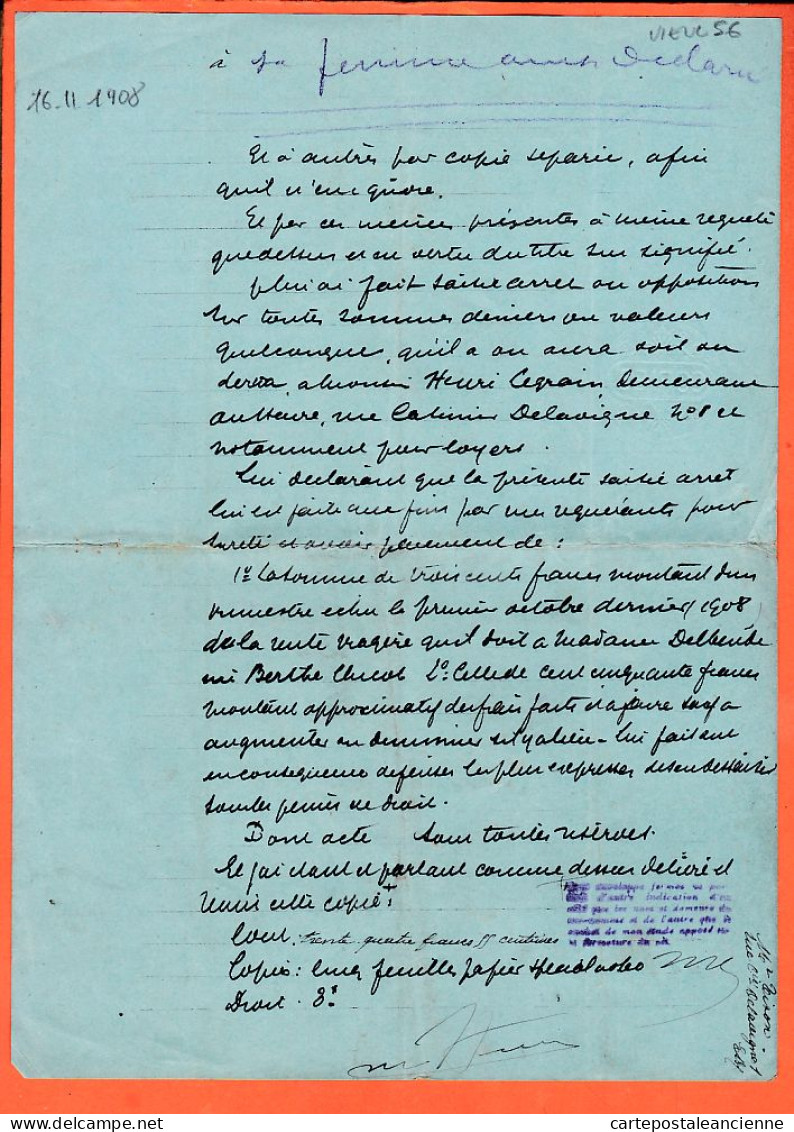 VIEUL 56
à sa femme ainsi déclaré
16.11 1908
Et à autres par copie séparée, afin
qu'il n'en ignore.
Et par ces mêmes présentes à même requête
que dessus et en vertu du titre sus signifié.
plui ai fait saisie arret ou opposition
sur toutes sommes deniers ou valeurs
quelconques, qu'il a ou aura soit ou
devra, a Monsieur Henri Legrain, demeurant
au Havre, rue Casimir Delavigne N° 8 et
notamment pour loyers.
Lui déclarant que la présente saisie arret
lui est faite aux fins par mes requérants pour
sureté et avoir paiement de :
1° La somme de trois cents francs montant d'un
trimestre echu le premier octobre dernier (1908)
de la rente viagère qu'il doit a Madame
née Berthe 2° Celle de cent cinquante francs
montant approximatif des frais faits et a faire sauf a
augmenter ou diminuer s'il y a lieu - Lui faisant
en consequence defenses les plus expresses de s'en dessaisir
sous les peines de droit.
Dont acte sous toutes réserves.
Et j'ai étant et parlant comme dessus délivré et
remis cette copie
Cout: trente quatre francs 55 centimes
Copie: feuilles papier
Droit. 8°
enveloppe fermée ne por
d'autre indication d'un
côté que les nom et demeure du
et de l'autre que le
cachet de mon étude apposé sur
la fermeture du pli.
rue Cir Delavigne